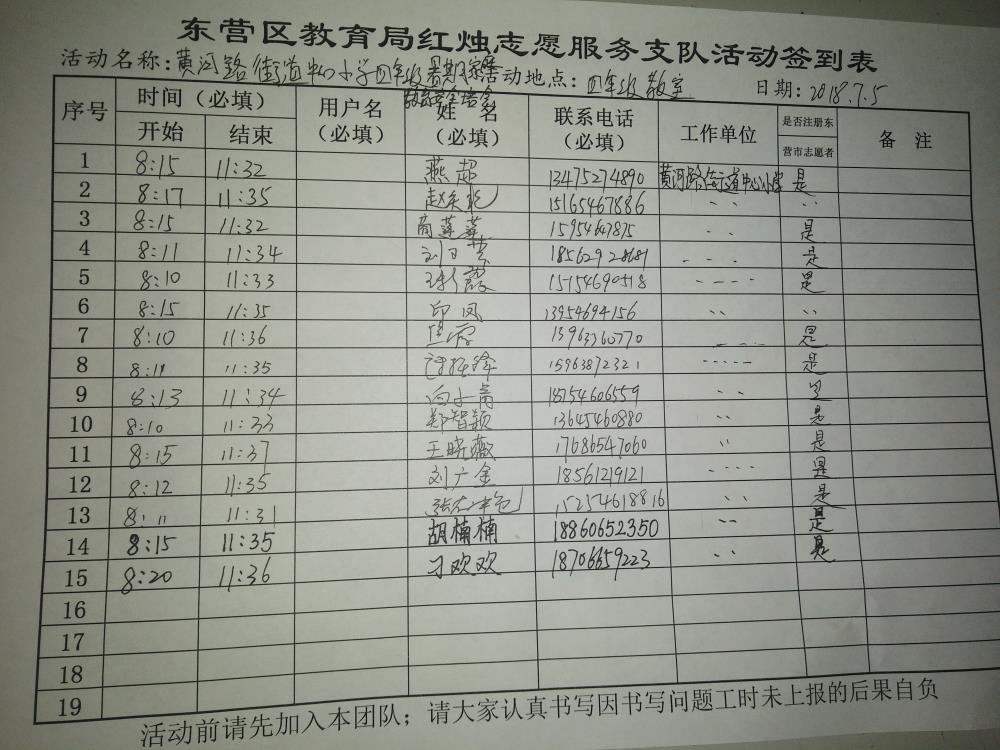 东营区教育局红烛志愿服务支队活动签到表
活动名称：黄河路街道中心小学四年级暑期 活动地点：四年级教室 日期：2018.7.5
序号 时间（必填） 用户名（必填） 姓名（必填） 联系电话（必填） 工作单位 是否注册东营市志愿者 备注
开始 结束
1 8:15 11:32 燕超 13475274890 黄河路街道中心小学 是
2 8:17 11:35 15165467886 、、 、、
3 8:15 11:32 商莲华 15954647875 、、 是
4 8:11 11:34 18562928681 、、、 是
5 8:10 11:33 15154690518 、、、、 是
6 8:15 11:35 印凤 13954694156 、、 、、
7 8:10 11:36 13963760770 是
8 8:11 11:35 15963872321 是
9 8:13 11:34 18754606559 、、 是
10 8:10 11:33 郑智颖 13645460880 、、 是
11 8:15 11:37 王晓薇 17686547060 、、 是
12 8:12 11:35 刘广金 18561219121 、、、、 是
13 8:11 11:31 15254618816 、、 是
14 8:15 11:35 胡楠楠 18860652350 、、 是
15 8:20 11:36 刁欢欢 18706659223 、、 是
16
17
18
19
活动前请先加入本团队；请大家认真书写因书写问题工时未上报的后果自负